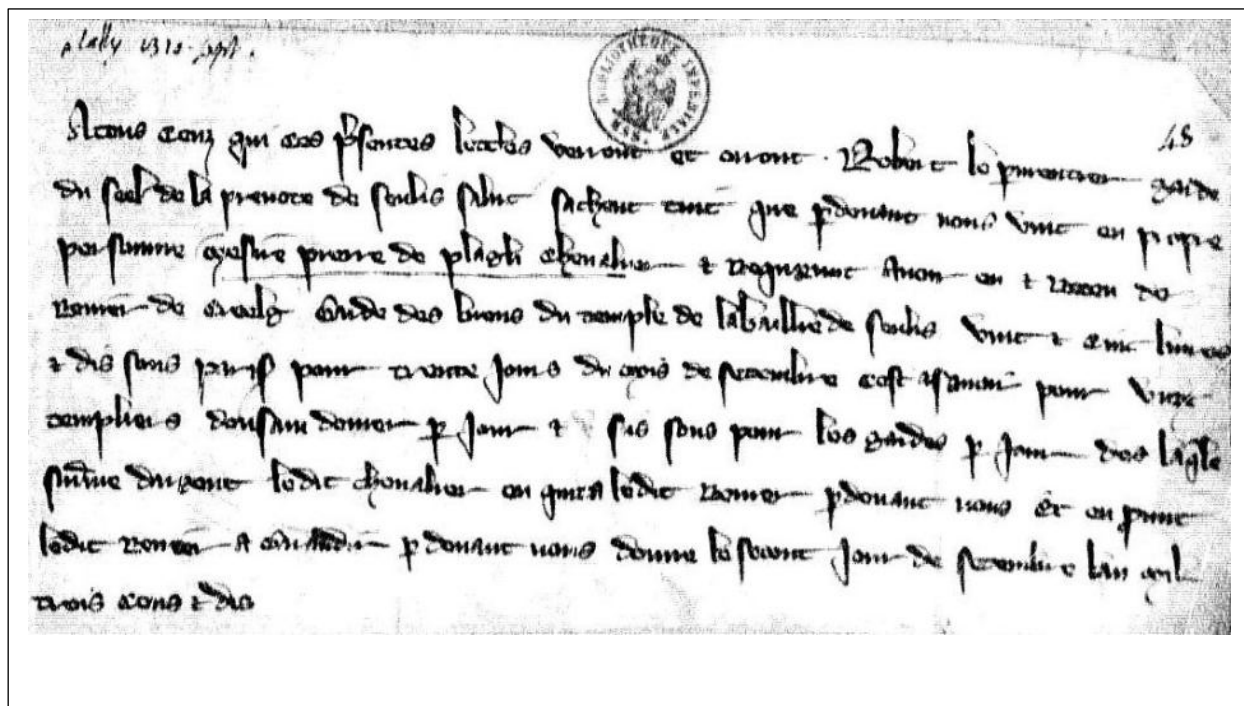 plally 1310. sept.
BIBLIOTHEQUE IMPERIALE
48
A tous ceuz qui ces psentes lettres verront et orront . Robert le garde
du seel de la prevote de senlis salut sachent tuit que p devant nous vint en propre
personne mesire pierre de plagli chevalier t requenut avoir eu t receu de
Renier de Creelg Garde des biens du temple de la baillie de senlis vint t cinc livres
t dis sous paris pour trente jours du mois de septembre cest asavoir pour
templiers deniers p jour t sis sous pour les gardes p jour des
somme dargent ledit chevalier en quita ledit Renier p devant nous et en
ledit Renier a p devant nous donne le jour de septembre lan mil
trois cens t dis